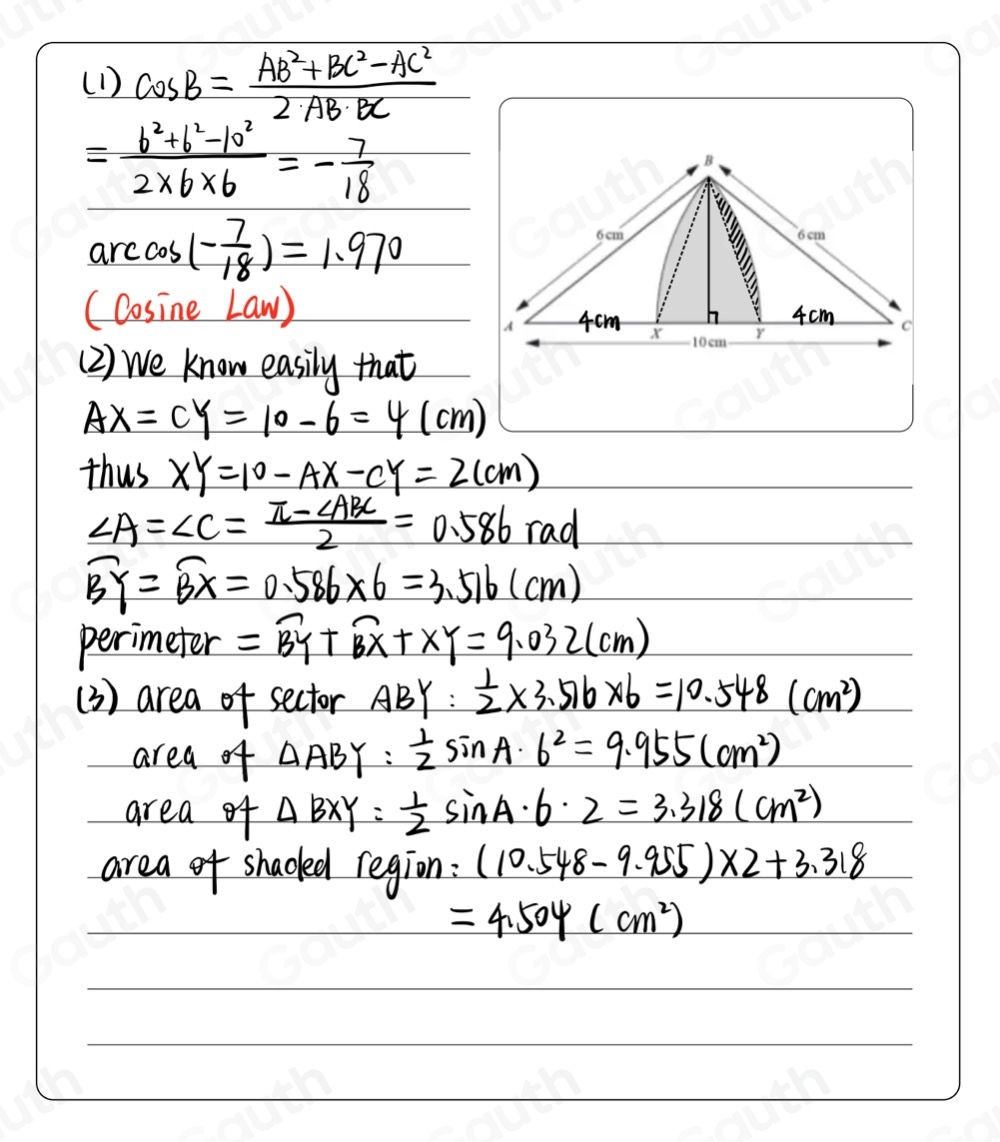 (1) cosB = AB²+BC²-AC² / 2·AB·BC
= 6²+6²-10² / 2×6×6 = -7/18
arccos(-7/18) = 1.970
(Cosine Law)
B
6cm
6cm
A
4cm
X
Y
4cm
C
10cm
(2) We know easily that
AX = CY = 10-6 = 4 (cm)
thus XY = 10-AX-CY = 2(cm)
∠A = ∠C = π-∠ABC / 2 = 0.586 rad
B͡Y = B͡X = 0.586×6 = 3.516 (cm)
perimeter = B͡Y + B͡X + XY = 9.032(cm)
(3) area of sector ABY : 1/2 × 3.516 × 6 = 10.548 (cm²)
area of △ABY : 1/2 sinA · 6² = 9.955(cm²)
area of △BXY : 1/2 sinA · 6 · 2 = 3.318 (cm²)
area of shaded region: (10.548-9.955)×2+3.318
= 4.504 (cm²)
Gauth